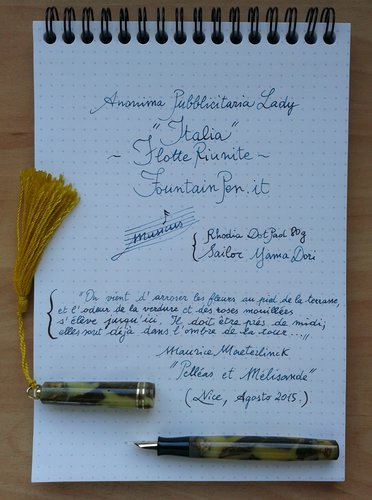 Anonima Pubblicitaria Lady
"Italia"
~ Flotte Riunite ~
FountainPen.it
musicus
{ Rhodia DotPad 80g
Sailor Yama Dori
{ "On vient d'arroser les fleurs au pied de la terrasse,
et l'odeur de la verdure et des roses mouillées
s'élève jusqu'ici. Il doit être près de midi,
elles sont déjà dans l'ombre de la tour..."
Maurice Maeterlinck
"Pelléas et Mélisande"
(Nice, Agosto 2015.)